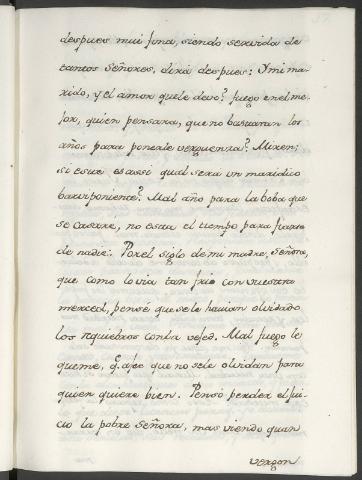 despues mui fina, siendo servida de
tantos Señores, dirá despues: Y mi ma-
rido, y el amor que le devo? fuego en el me-
jor, quien pensara, que no bastaran los
años para ponerle verguenza? Miren;
si este es assi qual sera un maridico
barviponiente? Mal año para la boba que
se casare, no esta el tiempo para fiarse
de nadie. Por el siglo de mi madre, Señora,
que como lo via tan frio con vuestra
merced, pensé que se le havian olvidado
los rquiebros con la vejed. Mal fuego le
queme, q. a fee que no se le olvidan para
quien quiere bien. Penso perder el jui-
cio la pobre Señora, mas viendo quan
vergon